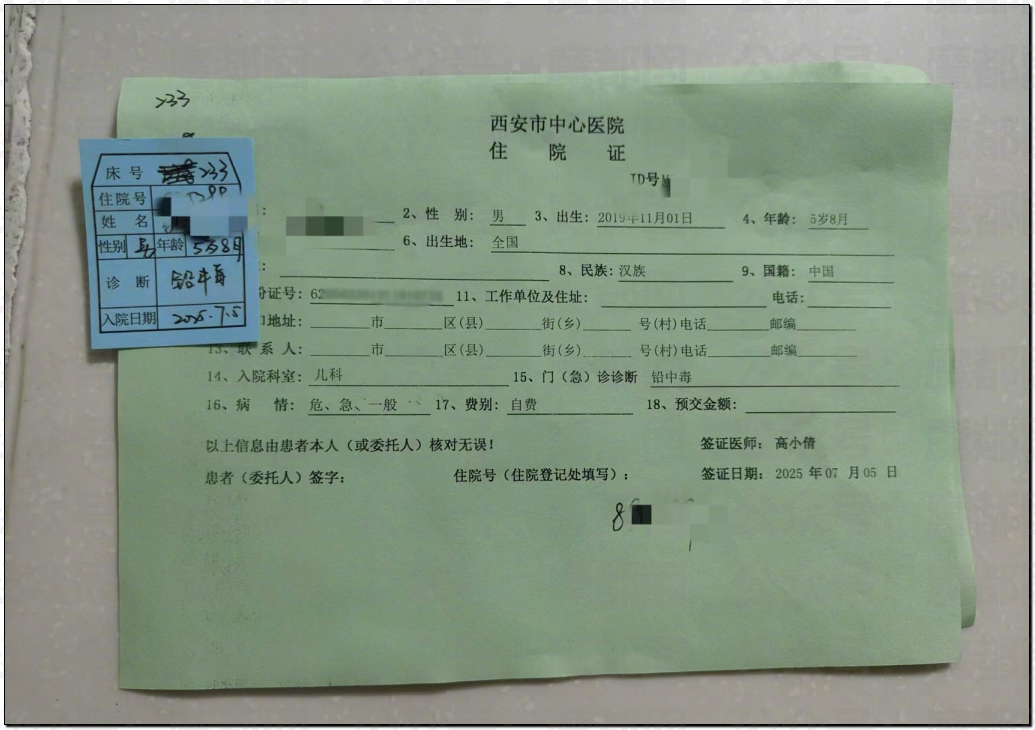 233
西安市中心医院
住 院 证
ID号
床号 233
住院号
姓 名
性别 男 年龄 5岁8月
诊 断 铅中毒
入院日期 2025.7.5
2、性 别: 男 3、出生: 2019年11月01日 4、年龄: 5岁8月
6、出生地: 全国
8、民族: 汉族 9、国籍: 中国
份证号: 62 11、工作单位及住址: 电话:
地址: 市 区(县) 街(乡) 号(村)电话 邮编
13、联 系 人: 市 区(县) 街(乡) 号(村)电话 邮编
14、入院科室: 儿科 15、门（急）诊诊断 铅中毒
16、病 情: 危、急、一般 17、费别: 自费 18、预交金额:
以上信息由患者本人（或委托人）核对无误! 签证医师: 高小倩
患者（委托人）签字: 住院号（住院登记处填写）: 签证日期: 2025 年 07 月 05 日
8